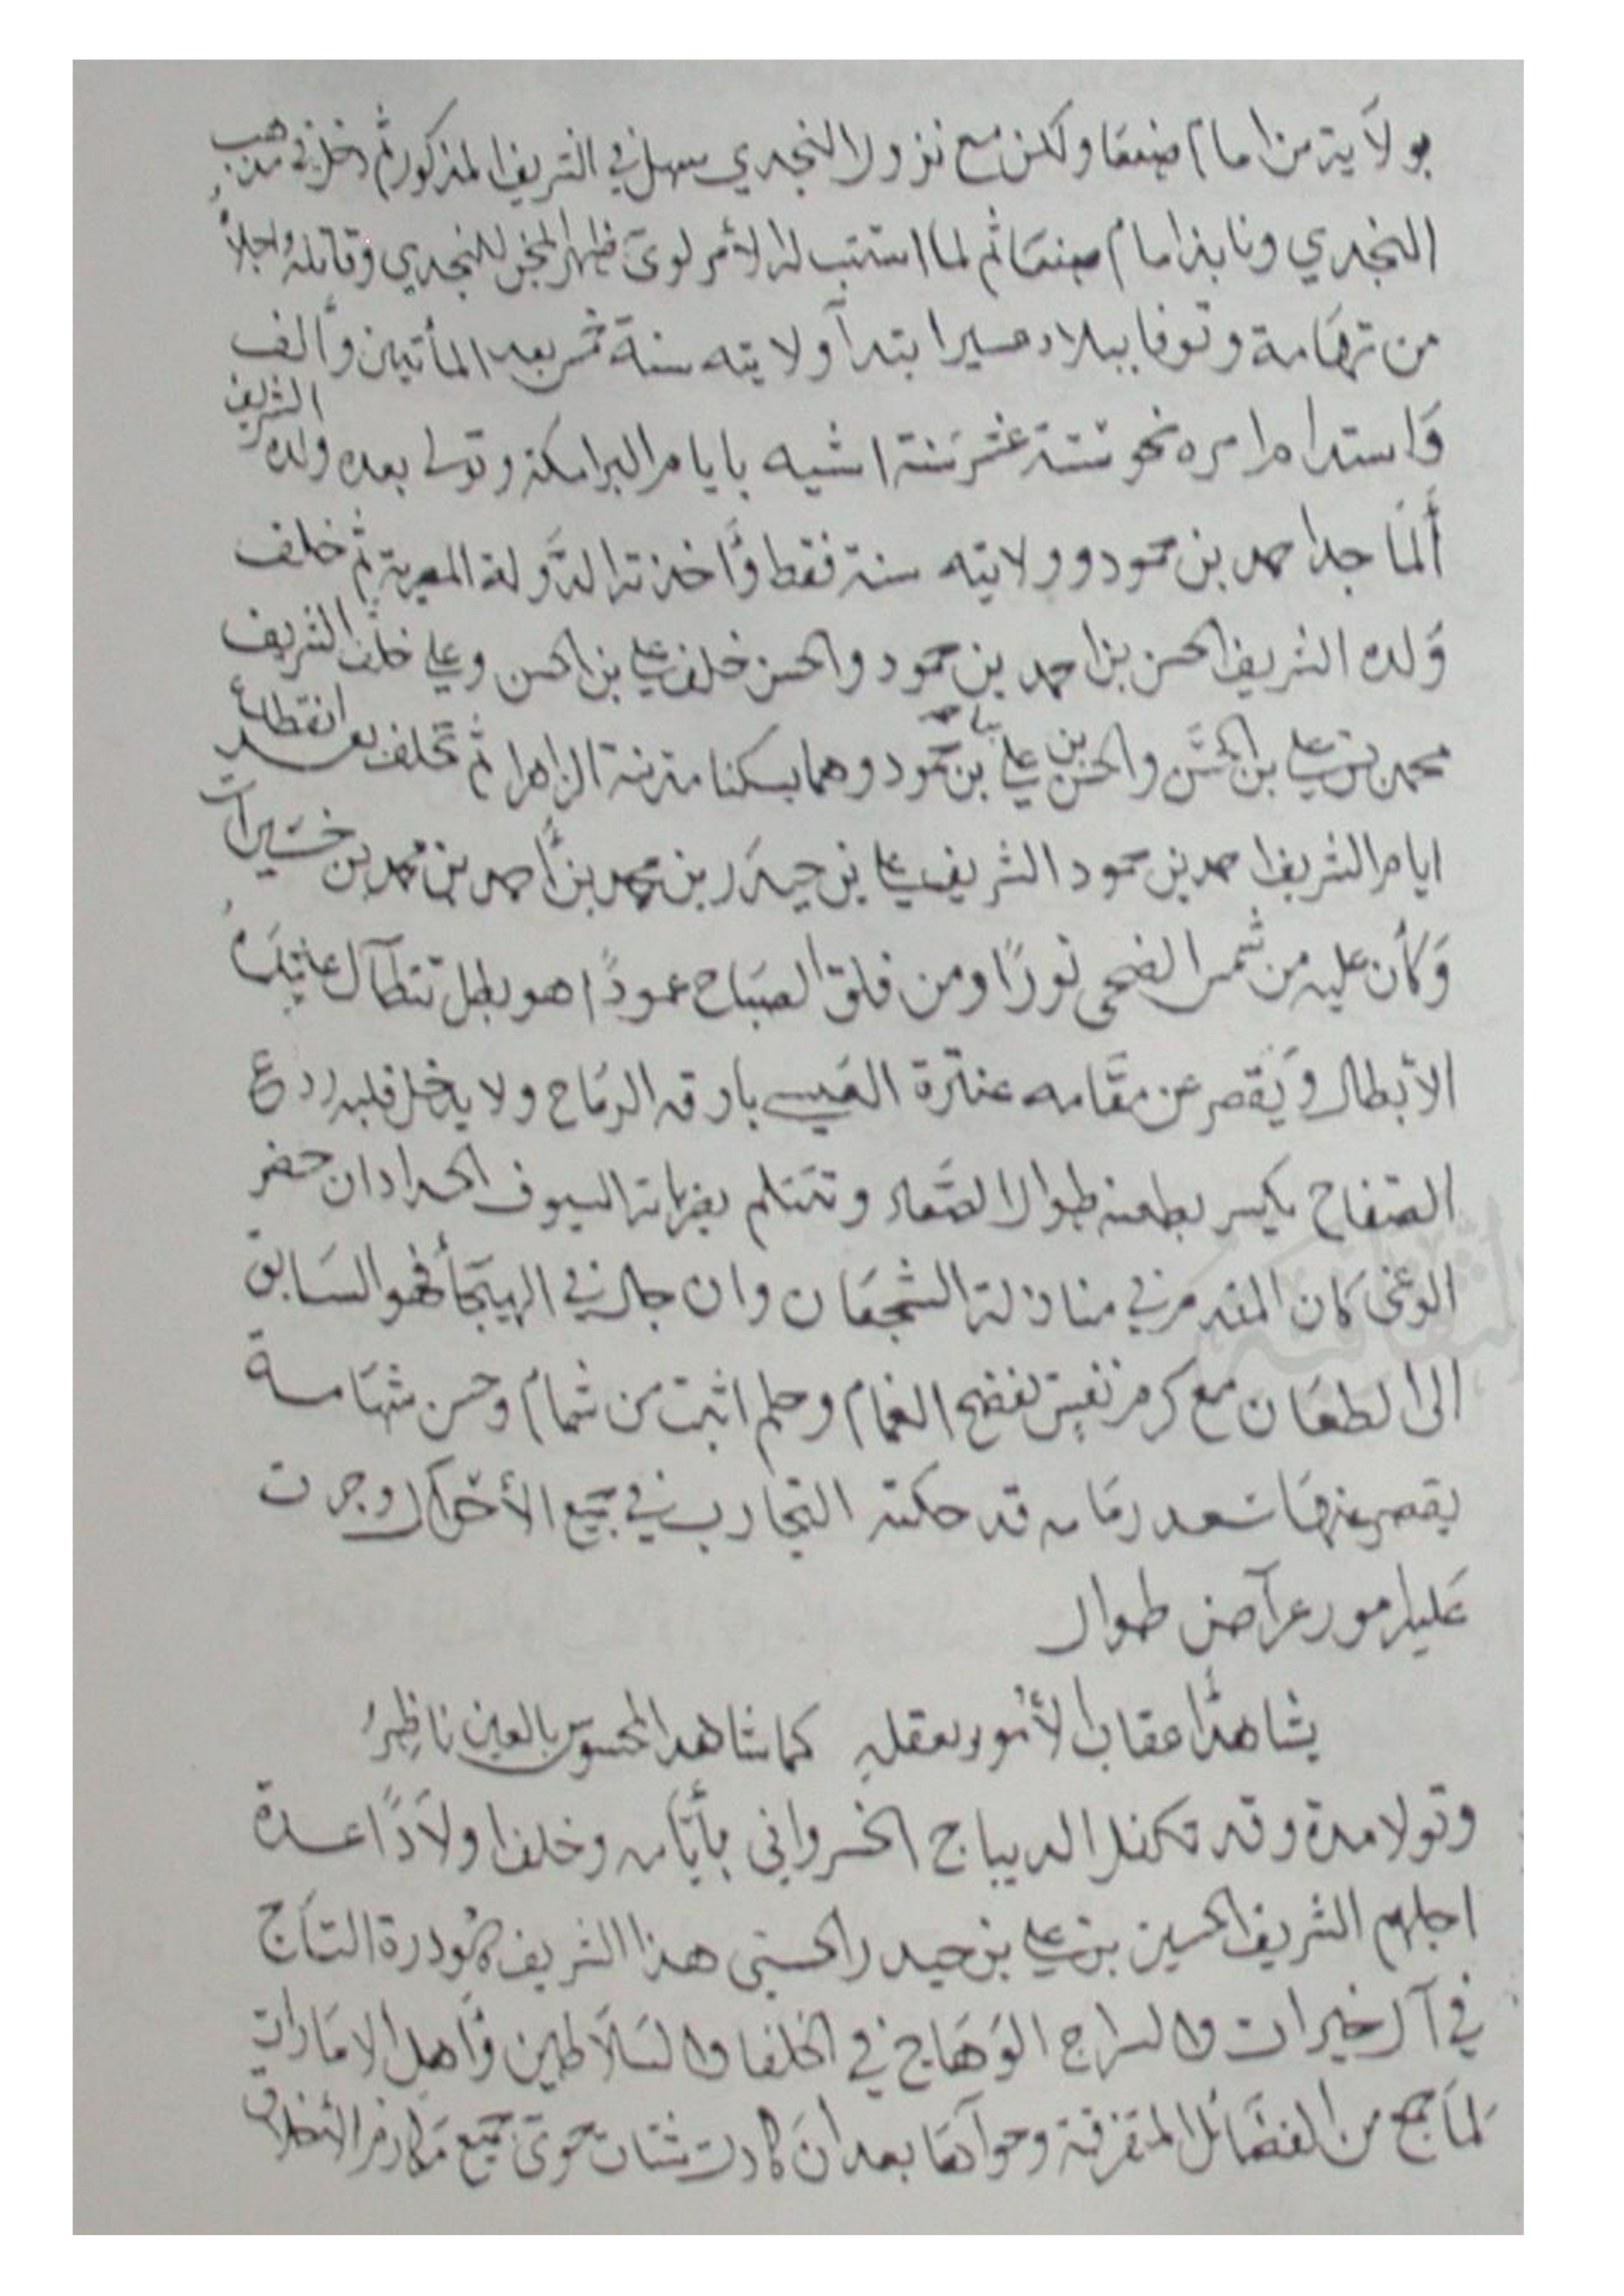 بولاية من امام صنعا ولكن مع نزول النجدي سهل في الشريف المذكور ثم دخل في مذهب
النجدي ونابذ امام صنعا ثم لما استتب له الأمر لوى ظهر المجن للنجدي وقاتله واجلاه
من تهامة وتوفا ببلاد عسير ابتدآ ولايته سنة خمس بعد المأتين وألف
وَاستدام امره نحو ستة عشر سنة اشبه بايام البرامكة وتولى بعده ولده الشريف
ألمَاجد احمد بن حمود وولايته سنة فقط وَأخذته الدَّولة المصرية ثم خلف
وَلده الشريف الحسن بن احمد بن حمود والحسن خلف علي بن الحسن وعلي خلف الشريف
محمد بن علي بن الحسَن والحسن بن علي بن حمود وهما بسكنا مدينة الزاهرا ثم تخلف بعد انقطاع
ايام الشريف احمد بن حمود الشريف علي بن حيدَر بن محمد بن أحمد بن محمد بن خيرات
وَكأن عليه من شمس الضحى نورًا ومن فلق الصبَاح عمودًا هو بطل
الأبطال وَيقصر عن مقَامه عنترة العبسي بارقه الرمَاح ولا يدخل قلبه ردع
الصفاح يكسر بطعنه طوال الصِّعاد وتتثلم بضرباته السيوف الحداد ان حضر
الوغى كَان المقدم في منازلة الشجعَان وان جال في الهيجَأ فهو السَابق
الى الطعَان مع كرم نفس تفضح الغمام وحلم اثبت من شمام وحسن شهَامة
يقصر عنهَا سعد زمَانه قد حكته التجارب في جميع الأحوال وجرت
عَليه امور عرآض طوال
يشاهدُ أعقاب الأمُور بعقلهِ كما شاهد المحسوس بالعين ناظِرُ
وتولا مدة وقد تكفل الديباج الخسرواني بأيَّامه وخلف اولاَدًا عدة
اجلهم الشريف الحسين بن علي بن حيدر الحسني هذا الشريف هُو درة التاج
في آل خيرات والسراج الوَهَاج في الخلفا والسَلاَطين وَأهل الامَارات
لمَا جمع من الفضَائل المتفرقة وحوآهَا بعد انَ كادت شتات حوىَ جَميع مَكارم الأخلاق